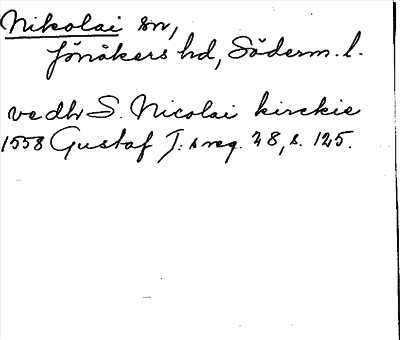 Nikolai sn,
Jönåkers hd, Söderm. l.
vedh S. Nicolai kirckie
1558 Gustaf I:s reg. 28, s. 125.